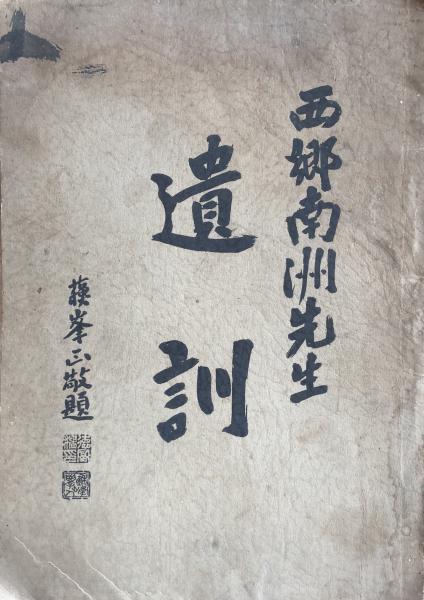 西郷南洲先生
遺訓
蘇峯正敬題